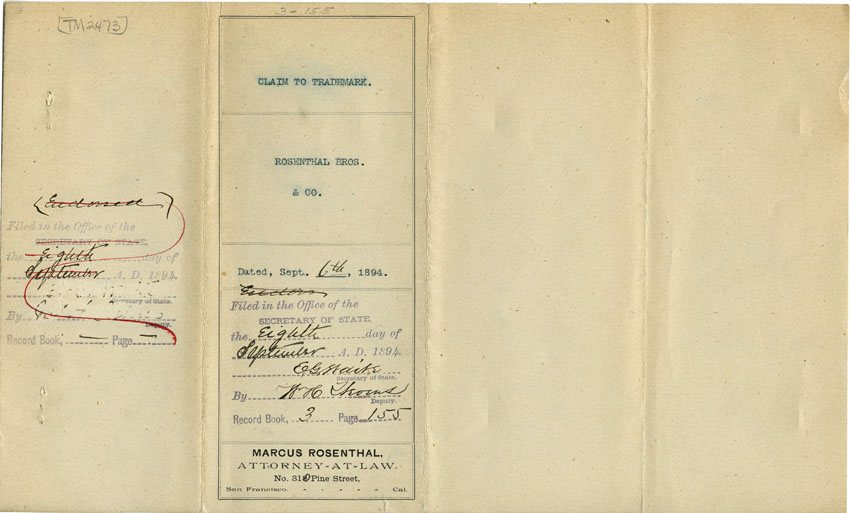 [TM2473]
3-155
(Endorsed)
Filed in the Office of the
SECRETARY OF STATE,
the Eighth day of
September A. D. 1894.
Secretary of State.
By
Deputy.
Record Book, — Page —
CLAIM TO TRADEMARK.
ROSENTHAL BROS.
& CO.
Dated, Sept. 6th, 1894.
Filed in the Office of the
SECRETARY OF STATE,
the Eighth day of
September A. D. 1894.
E.G. Waite
Secretary of State.
By W H
Deputy.
Record Book, 3 Page 155
MARCUS ROSENTHAL,
ATTORNEY-AT-LAW.
No. 310 Pine Street,
San Francisco. - - - - - Cal.